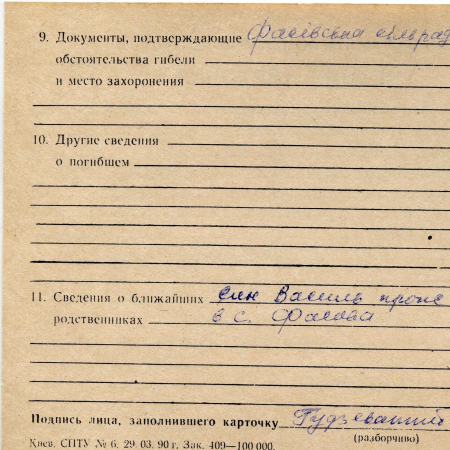 9. Документы, подтверждающие Фасівська сільрад
обстоятельства гибели
и место захоронения
10. Другие сведения
о погибшем
11. Сведения о ближайших син Василь прожс
родственниках в с. Фасова
Подпись лица, заполнившего карточку
(разборчиво)
Киев. СПТУ № 6. 29. 03. 90 г. Зак. 409—100 000.